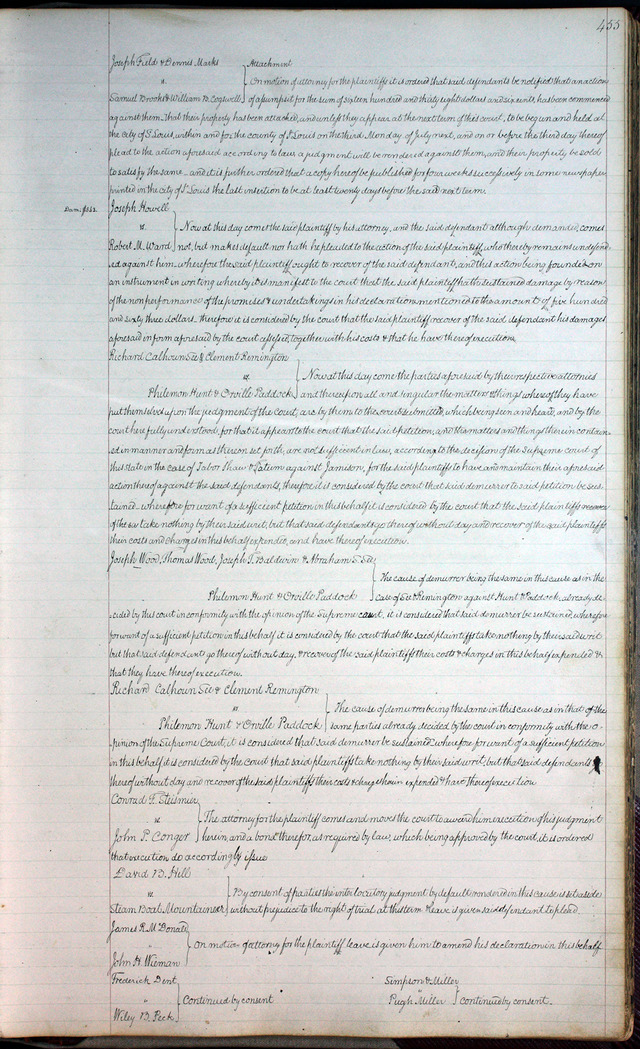 455
Joseph Field & Dennis Marks Attachment
" On motion of attorney for the plaintiffs it is ordered that said defendants be notified that an action
Samuel Brooks & William B. Cogswell of assumpsit for the sum of sixteen hundred and thirty eight dollars and six cents has been commenced
against them, that their property has been attached, and unless they appear at the next term of this court, to be begun and held at
the city of St Louis, within and for the county of St Louis on the third Monday of July next, and on or before the third day thereof
plead to the action aforesaid according to law a judgment will be rendered against them, and their property be sold
to satisfy the same. and it is further ordered that a copy hereof be published for four weeks successively in some newspaper
printed in the city of St Louis the last insertion to be at least twenty days before the said next term.
Joseph Howell
vs. Now at this day comes the said plaintiff by his attorney, and the said defendant although demanded, comes
Robert M. Ward not, but makes default nor hath he pleaded to the action of the said plaintiff, who thereby remains undefend
ed against him. wherefore the said plaintiff ought to recover of the said defendant, and this action being founded on
an instrument in writing whereby it is manifest to the court that the said plaintiff hath sustained damage by reason
of the nonperformance of the promises & undertakings in his declaration mentioned to the amount of five hundred
and sixty three dollars. therefore it is considered by the court that the said plaintiff recover of the said defendant his damages
aforesaid in form aforesaid by the court assessed, together with his costs & that he have thereof execution.
Richard Calhoun See & Clement Remington
vs. Now at this day come the parties aforesaid by their respective attornies
Philemon Hunt & Orville Paddock and thereupon all and singular the matters & things whereof they have
put themselves upon the judgment of the court, are by them to the court submitted, which being seen and heard, and by the
court here fully understood, for that it appears to the court that the said petition, and the matters and things therein contain
ed in manner and form as thereon set forth, are not sufficient in law, according to the decision of the Supreme court of
this state in the case of Tabor Shaw & Tatum against Jamison, for the said plaintiffs to have and maintain their aforesaid
action thereof against the said defendants, therefore it is considered by the court that said demurrer to said petition be sus
tained. wherefore for want of a sufficient petition in this behalf it is considered by the court that the said plaintiffs
take nothing by their said writ, but that said defendants go thereof without day and recover of the said plaintiffs
their costs and charges in this behalf expended, and have thereof execution.
Joseph Wood, Thomas Wood, Joseph T. Baldwin & Abraham S. See
The cause of demurrer being the same in this cause as in the
Philemon Hunt & Orville Paddock case of See & Remington against Hunt & Paddock, already de-
cided by this court in conformity with the opinion of the Supreme court, it is considered that said demurrer be sustained, wherefore
for want of a sufficient petition in this behalf it is considered by the court that the said plaintiffs take nothing by their said writ
but that said defendants go thereof without day, & recover of the said plaintiffs their costs & charges in this behalf expended &
that they have thereof execution.
Richard Calhoun See & Clement Remington
" The cause of demurrer being the same in this cause as in that of the
Philemon Hunt & Orville Paddock same parties already decided by the court in conformity with the o-
pinion of the Supreme Court, it is considered that said demurrer be sustained, wherefore for want of a sufficient petition
in this behalf it is considered by the court that said plaintiffs take nothing by their said writ, but that said defendants go
thereof without day and recover of the said plaintiffs their costs & charges herein expended & have thereof execution
Conrad F.
vs The attorney for the plaintiff comes and moves the court to award him execution of his judgment
John P. Conger herein, and a bond therefor, as required by law, which being approved by the court, it is ordered
that execution do accordingly issue
David B. Hill
vs. By consent of parties the interlocutory judgment by default rendered in this cause is set aside
Steam Boat Mountaineer without prejudice to the right of trial at this term & leave is given said defendant to plead.
James R. McDonald
On motion of attorney for the plaintiff leave is given him to amend his declaration in this behalf
John H. Wieman
Frederick Dent Simpson & Miller
" Continued by consent Pugh Miller continued by consent.
Wiley B. Peck